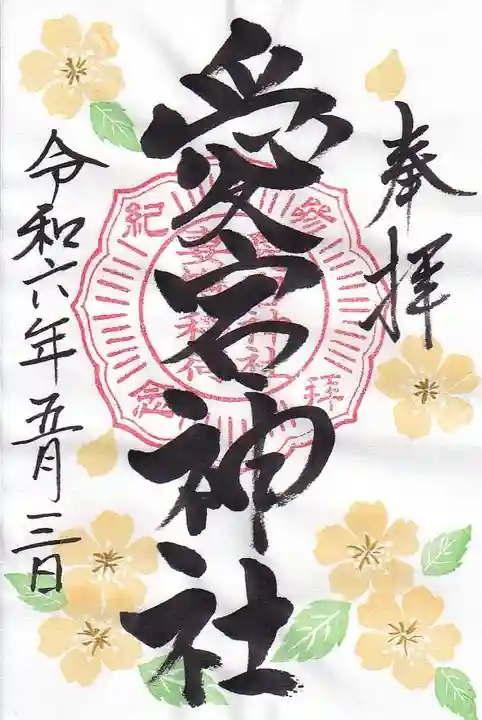 奉拝
愛宕神社
參拝
紀念
神社
令和六年五月三日